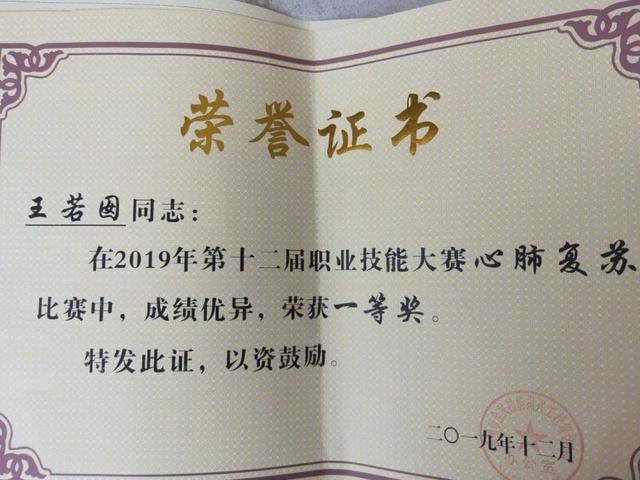 荣誉证书
王若囡同志：
在2019年第十二届职业技能大赛心肺复苏
比赛中，成绩优异，荣获一等奖。
特发此证，以资鼓励。
二〇一九年十二月
办公室